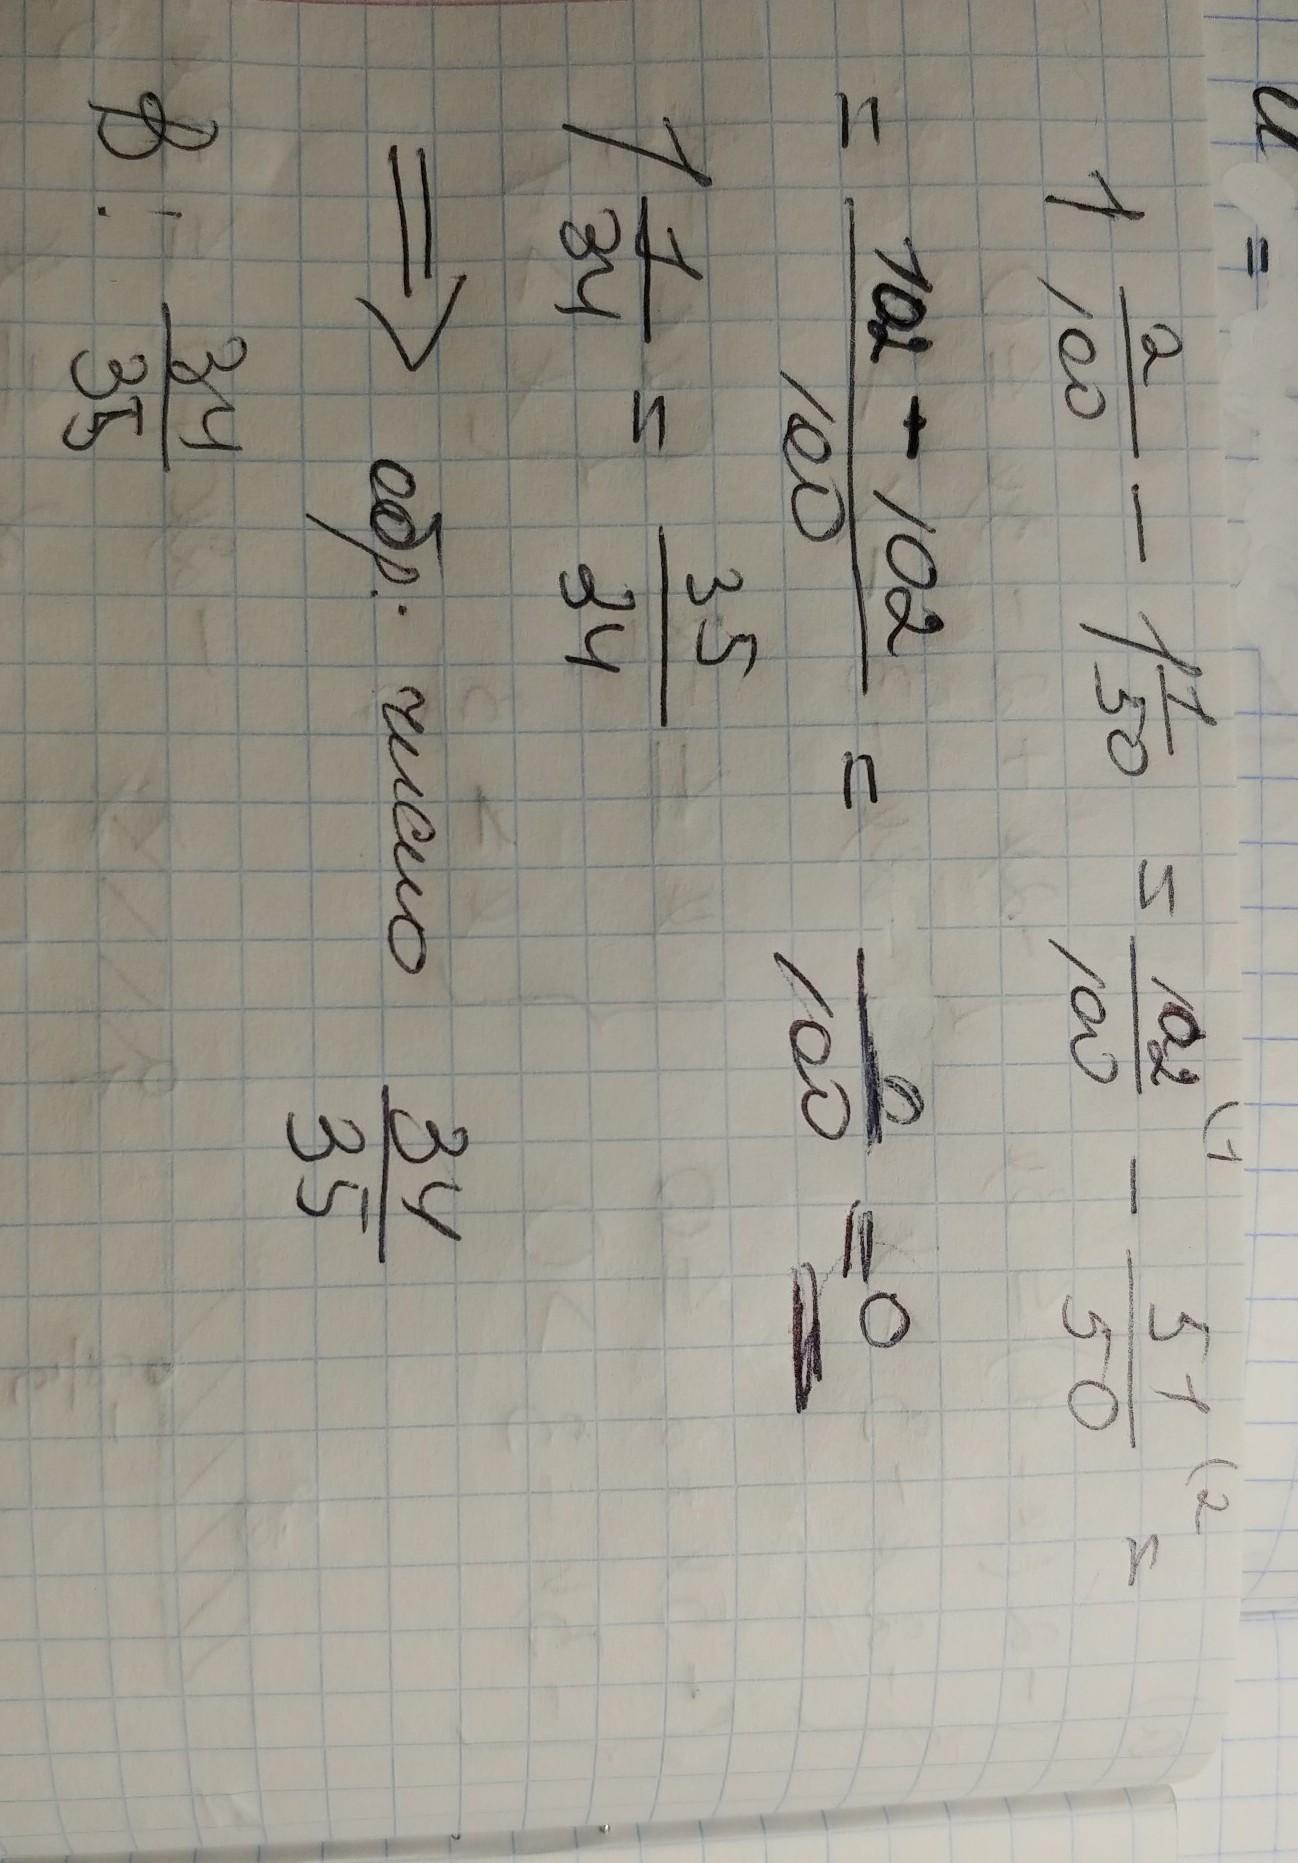 и =
1 2/100 - 1 1/50 = 102/100 (1 - 51/50 (2 =
= 102 - 102/100 = 0/100 = 0
1 1/34 = 35/34
⇒ обр. число 34/35
В: 34/35